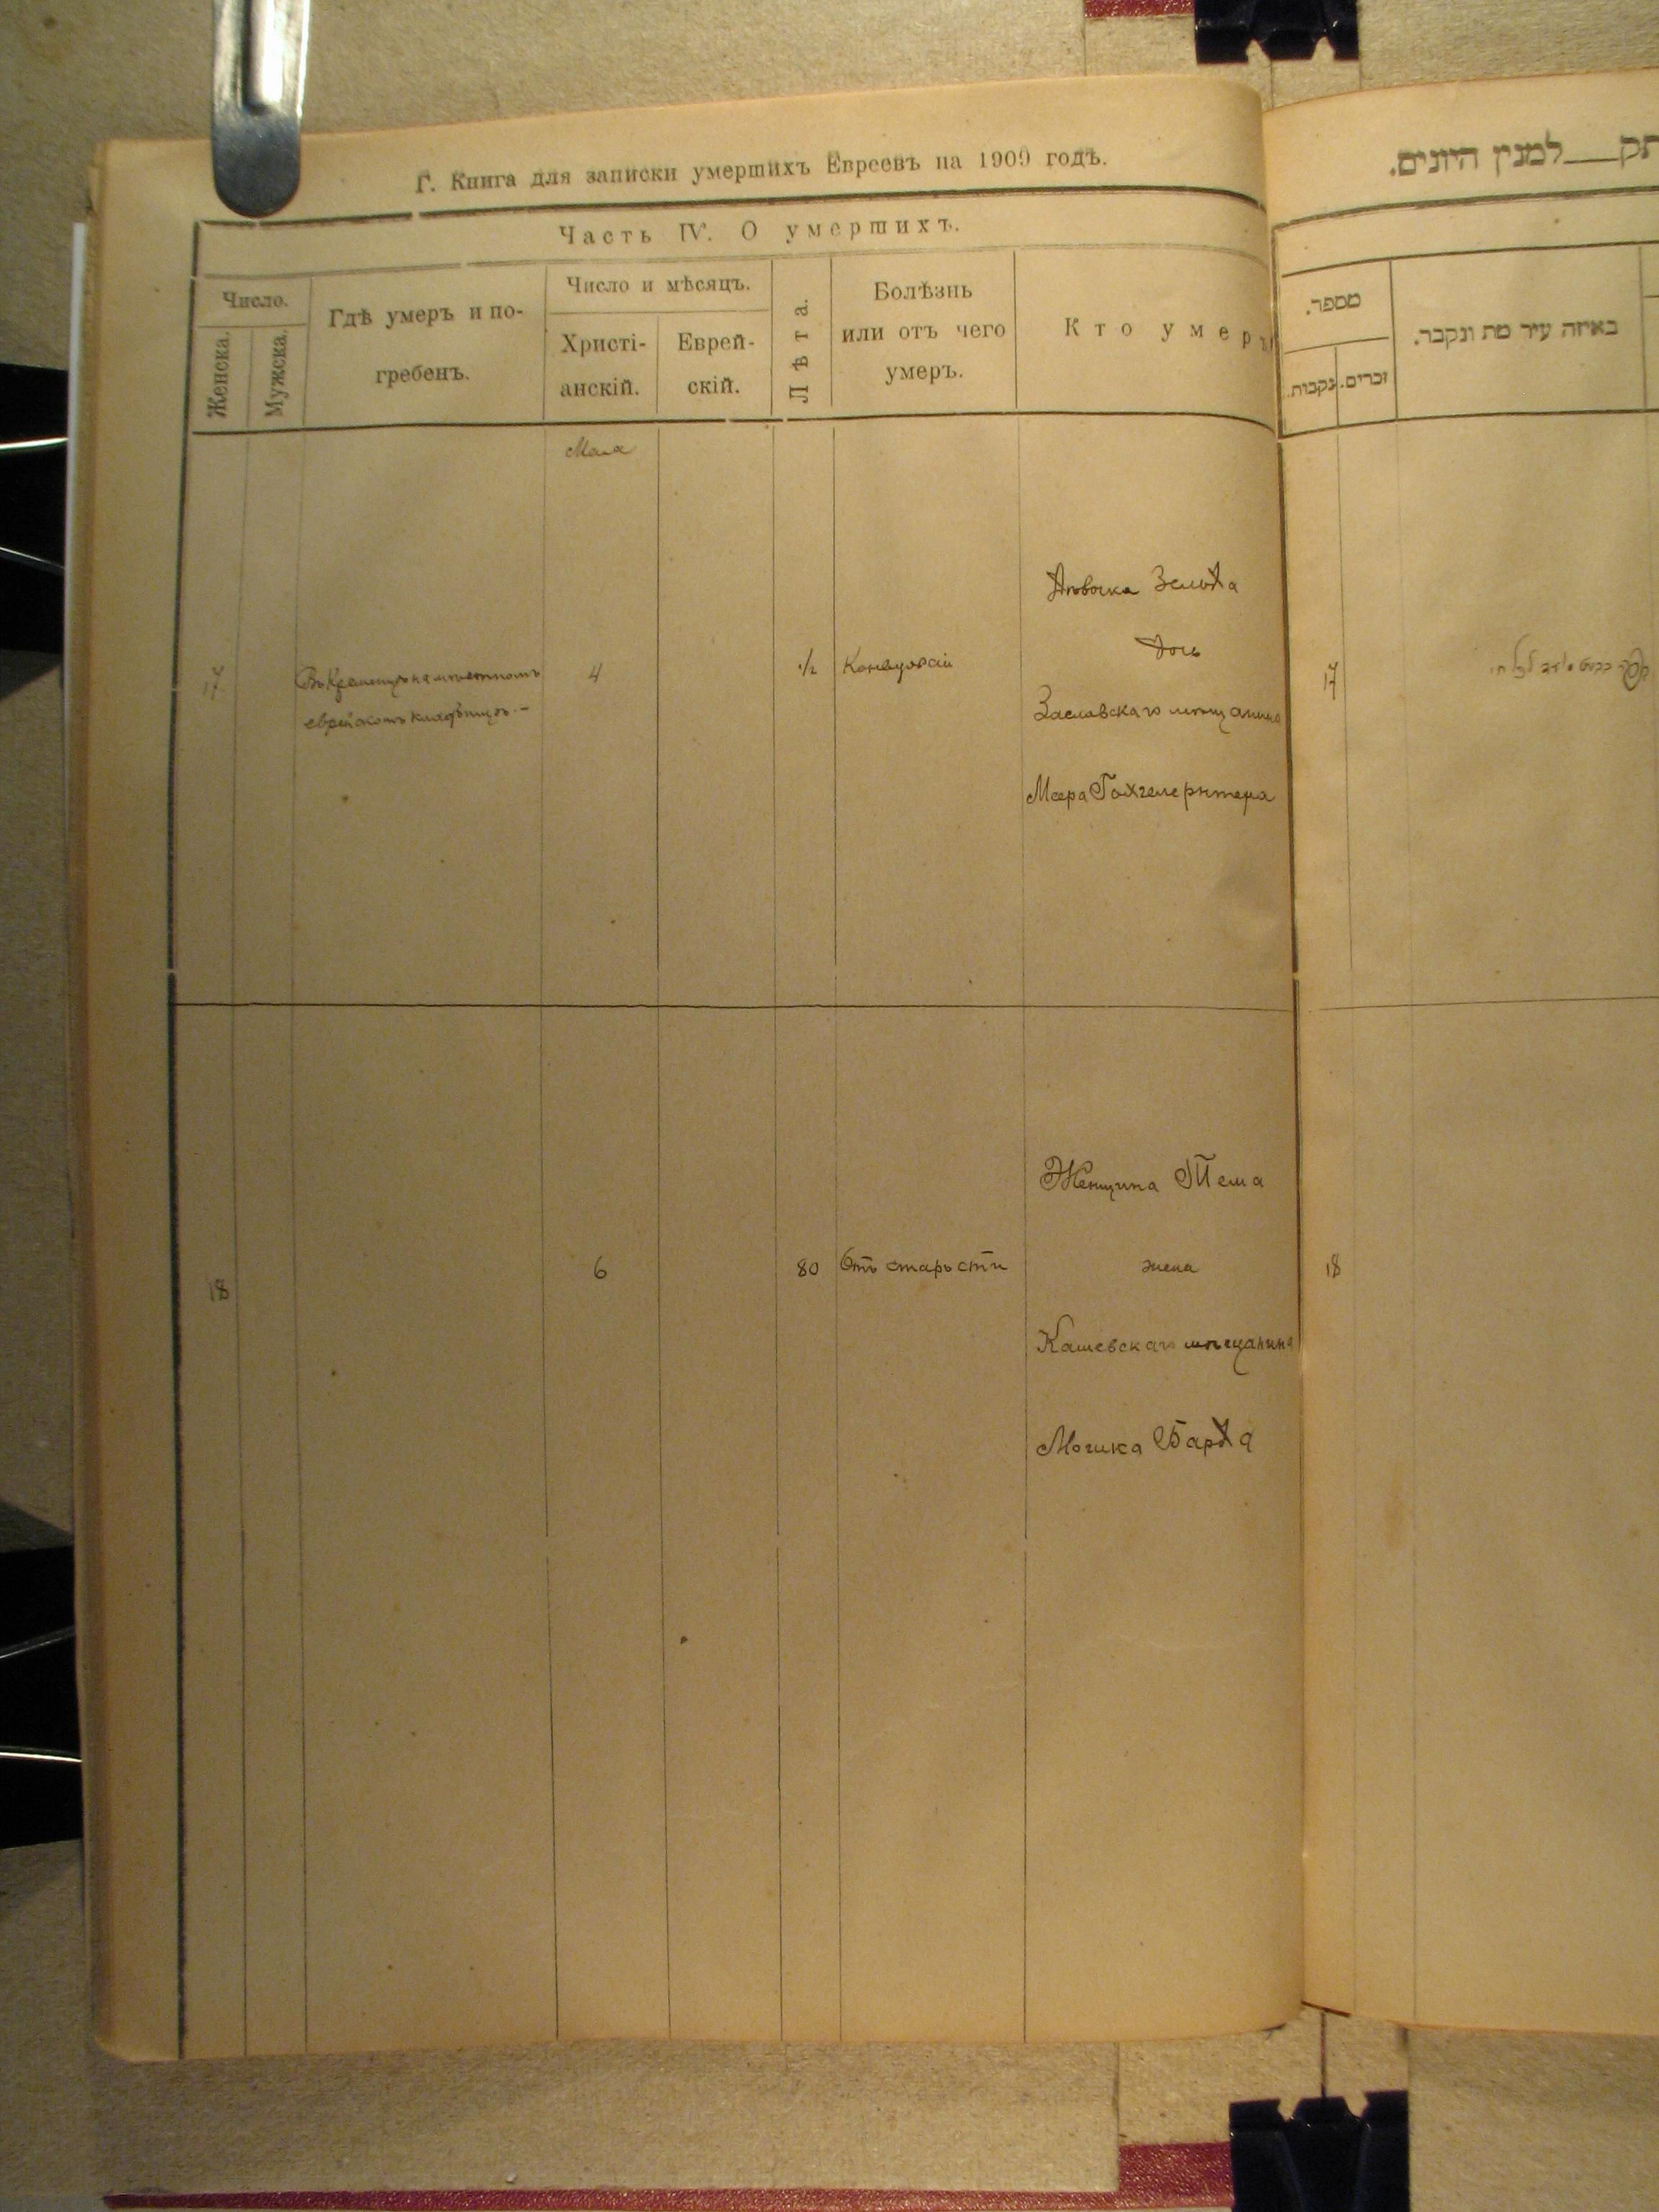 Г. Книга для записки умершихъ Евреевъ на 1909 годъ.
Часть IV. О умершихъ.
Число.
Женска.
Мужска.
Гдѣ умеръ и по-
гребенъ.
Число и мѣсяцъ.
Христі-
анскій.
Еврей-
скій.
Лѣта.
Болѣзнь
или отъ чего
умеръ.
Кто умеръ
Мая
17
Въ Кременцѣ на мѣстномъ
еврейскомъ кладбищѣ. –
4
1/2
Дѣвочка Зельда
дочь
Заславскаго мѣщанина
Меера Гохгелернтера
18
6
80
Отъ старости
Женщина Тема
жена
Кашевскаго мѣщанина
Мошка Барда
למנין היונים.
מספר.
נקבות.
זכרים.
באיזה עיר מת ונקבר.
17
18